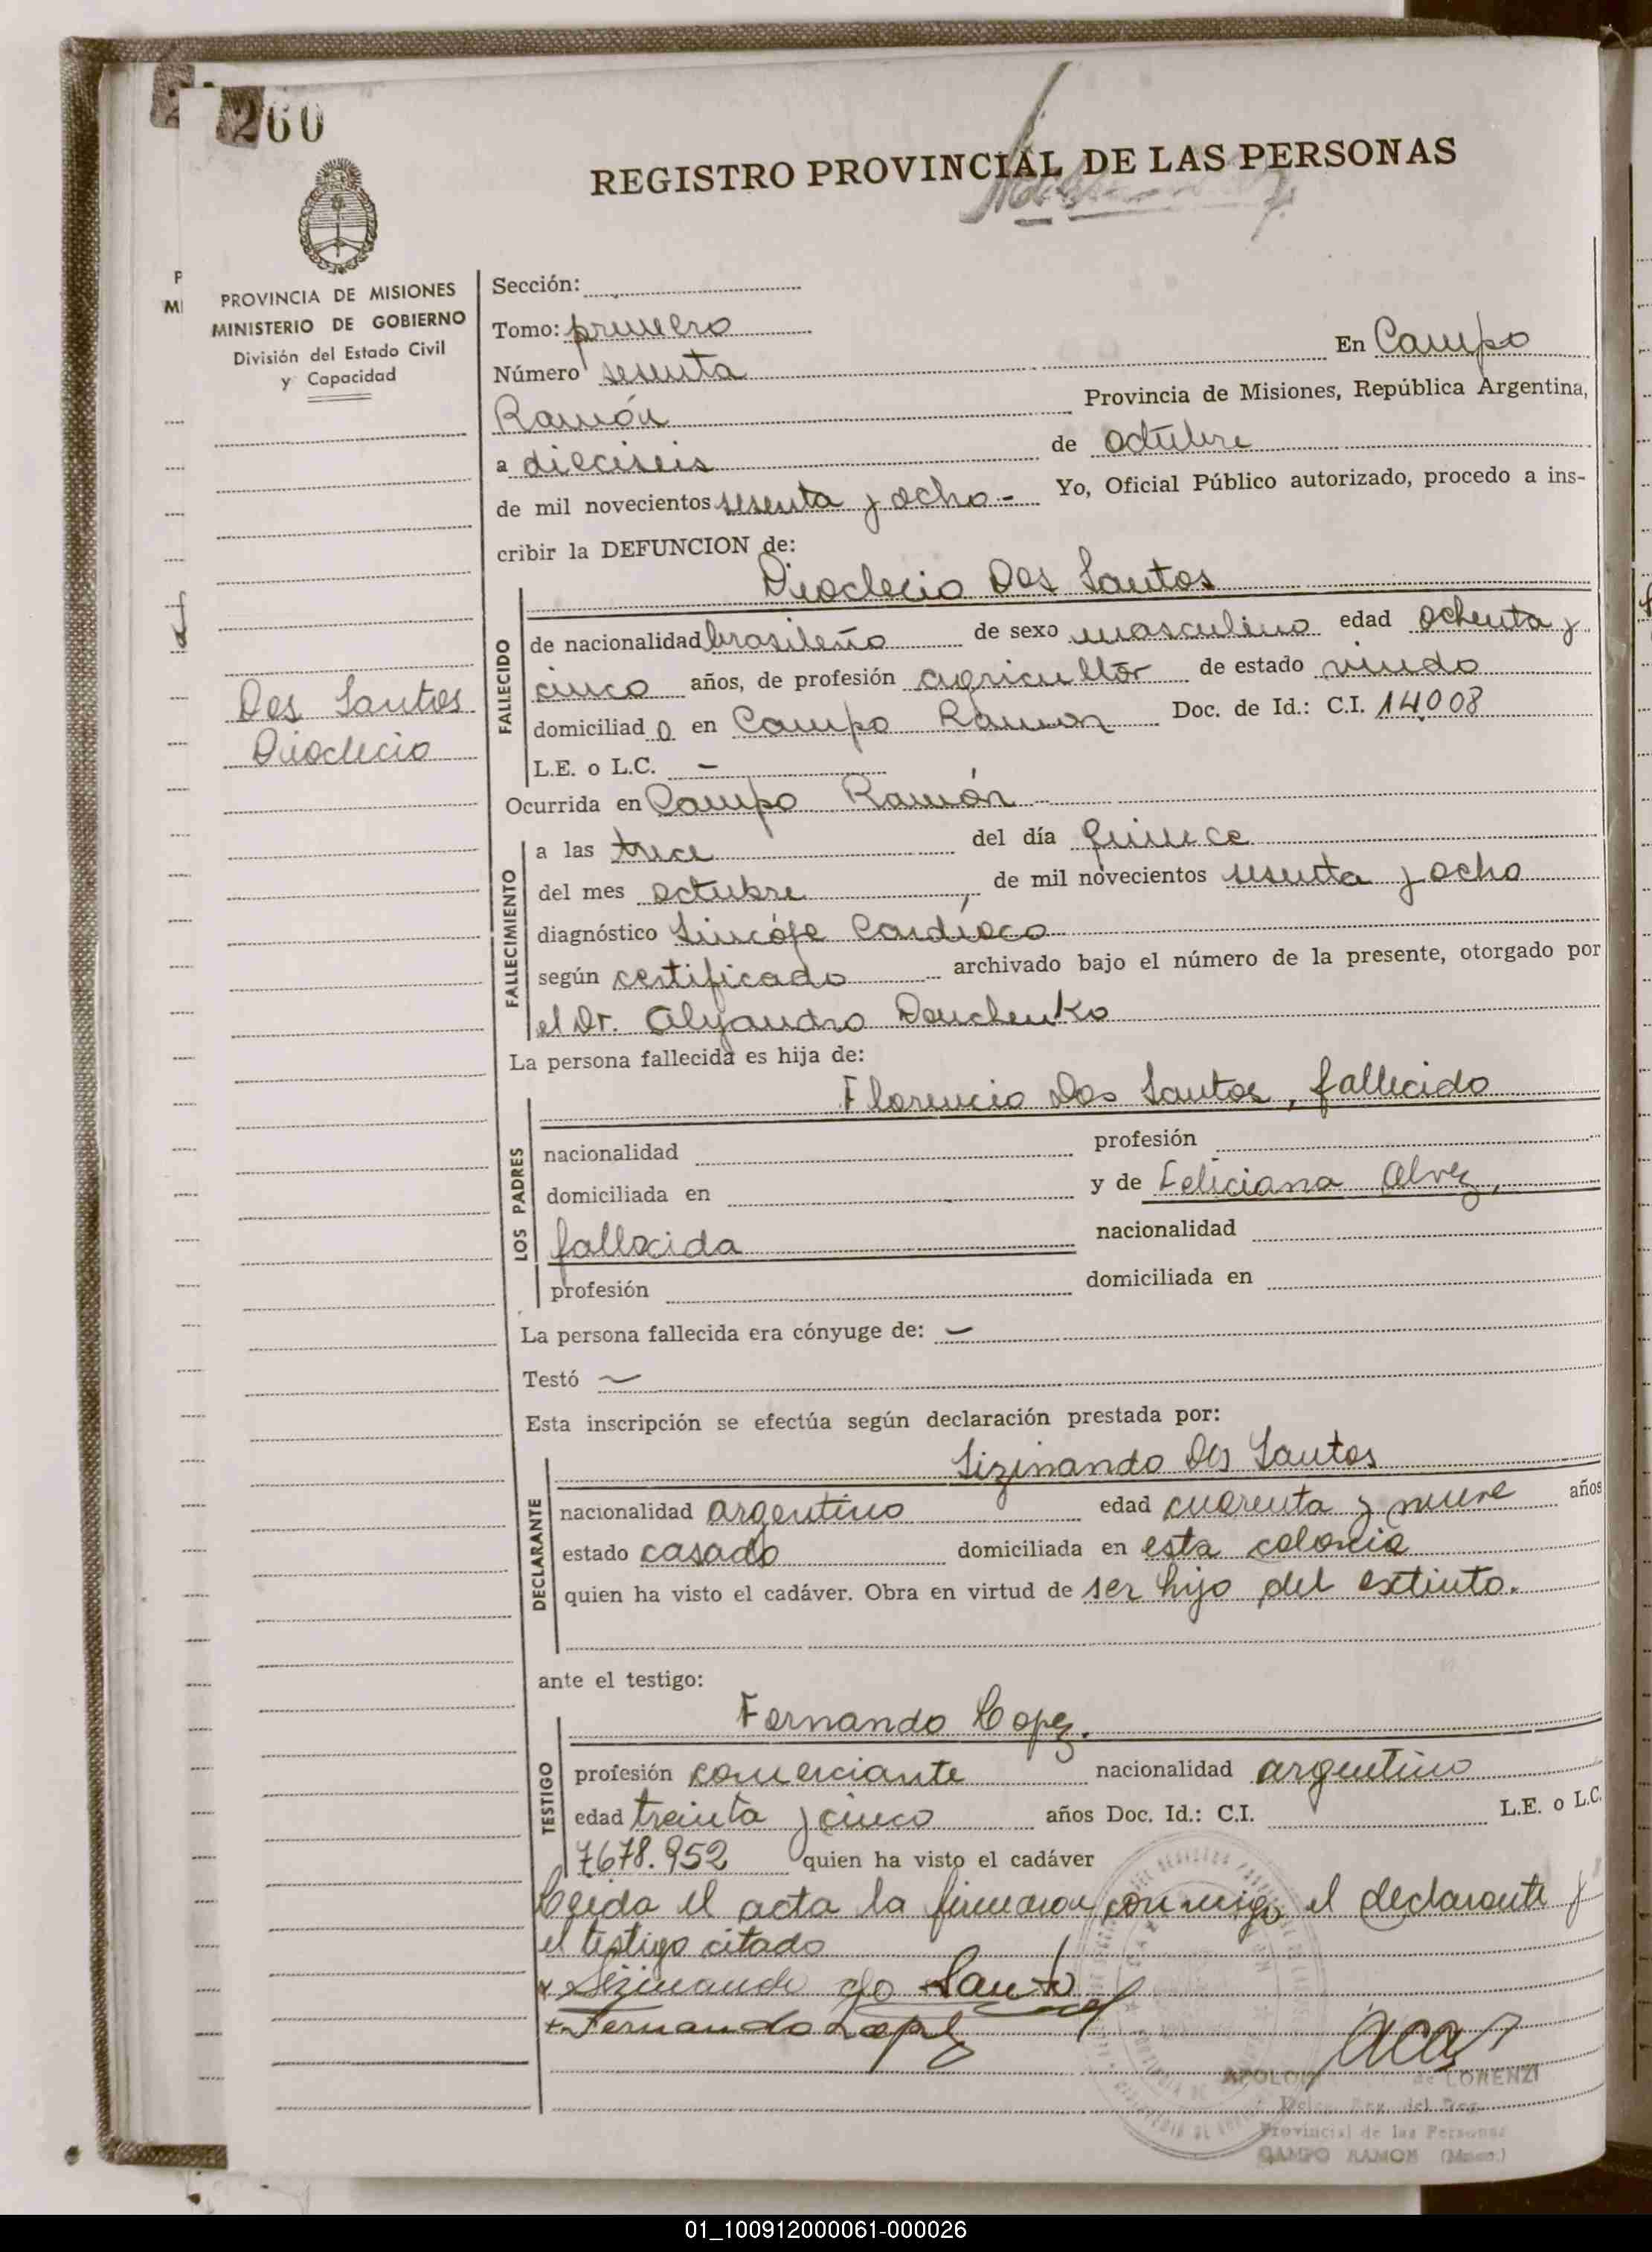 260
REGISTRO PROVINCIAL DE LAS PERSONAS
PROVINCIA DE MISIONES
MINISTERIO DE GOBIERNO
División del Estado Civil
y Capacidad
Sección:
Tomo: primero
Número sesenta En Campo
Ramón Provincia de Misiones, República Argentina,
a dieciseis de octubre
de mil novecientos sesenta y ocho.- Yo, Oficial Público autorizado, procedo a ins-
cribir la DEFUNCION de:
Dioclecio Dos Santos
FALLECIDO
de nacionalidad brasileño de sexo masculino edad ochenta y
cinco años, de profesión agricultor de estado viudo
Dos Santos
Dioclecio
domiciliad o en Campo Ramon Doc. de Id.: C.I. 14.008
L.E. o L.C. —
Ocurrida en Campo Ramón
FALLECIMIENTO
a las trece del día quince
del mes octubre, de mil novecientos sesenta y ocho
diagnóstico Sincófe Cardíaco
según certificado archivado bajo el número de la presente, otorgado por
el Dr. Alejandro Deuchenko
La persona fallecida es hija de:
Florencio Dos Santos, fallecido
LOS PADRES
nacionalidad profesión
domiciliada en y de Feliciana Alvez,
fallecida nacionalidad
profesión domiciliada en
La persona fallecida era cónyuge de: —
Testó —
Esta inscripción se efectúa según declaración prestada por:
Sizinando Dos Santos
DECLARANTE
nacionalidad argentino edad cuarenta y nueve años
estado casado domiciliada en esta colonia
quien ha visto el cadáver. Obra en virtud de ser hijo del extinto.
ante el testigo:
Fernando Lopez.
TESTIGO
profesión comerciante nacionalidad argentino
edad treinta y cinco años Doc. Id.: C.I. L.E. o L.C.
7678.952 quien ha visto el cadáver
Leida el acta la firmaron conmigo el declarante y
el testigo citado
Sizinando do Santo
Fernando Lopez
de LORENZI
Provincial de las Personas
CAMPO RAMON
01_100912000061-000026